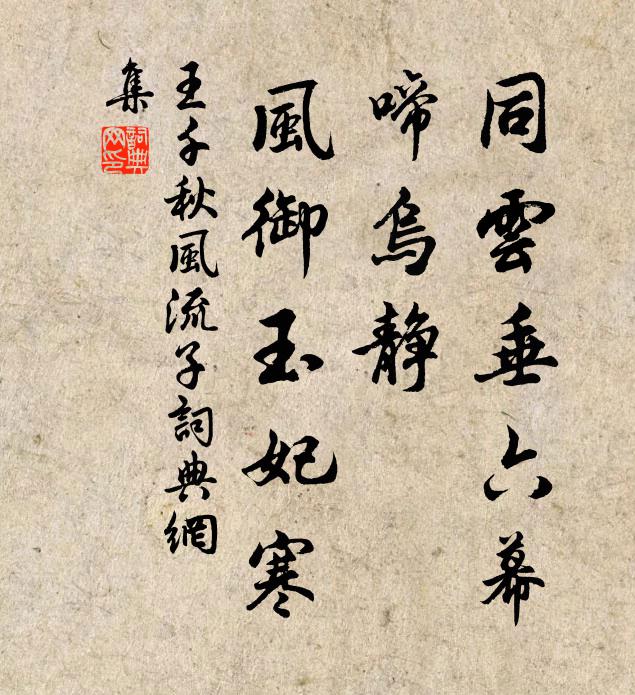 同雲垂六幕
啼烏靜
風御玉妃寒
王千秋風流子詞典網
集
詞典網印